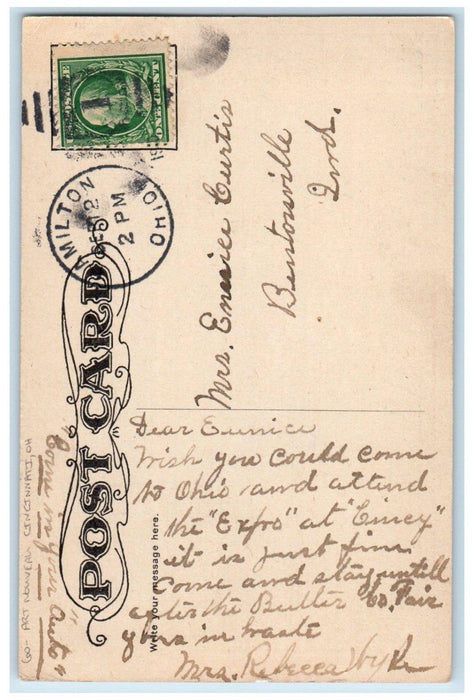 ONE CENT
1
HAMILTON
12
2 PM
OHIO
POST CARD
Write your message here.
Mrs. Eunice Curtis
Bentonville
Ind.
Dear Eunice
Wish you could come
to Ohio and attend
the "Expo" at "Cincy"
it is just fine
come and stay untill
after the Butler Co. Fair
yours in haste
Mrs. Rebecca
"Come in your Auto"
GO- ART NOUVEAU CINCINNATI, OH